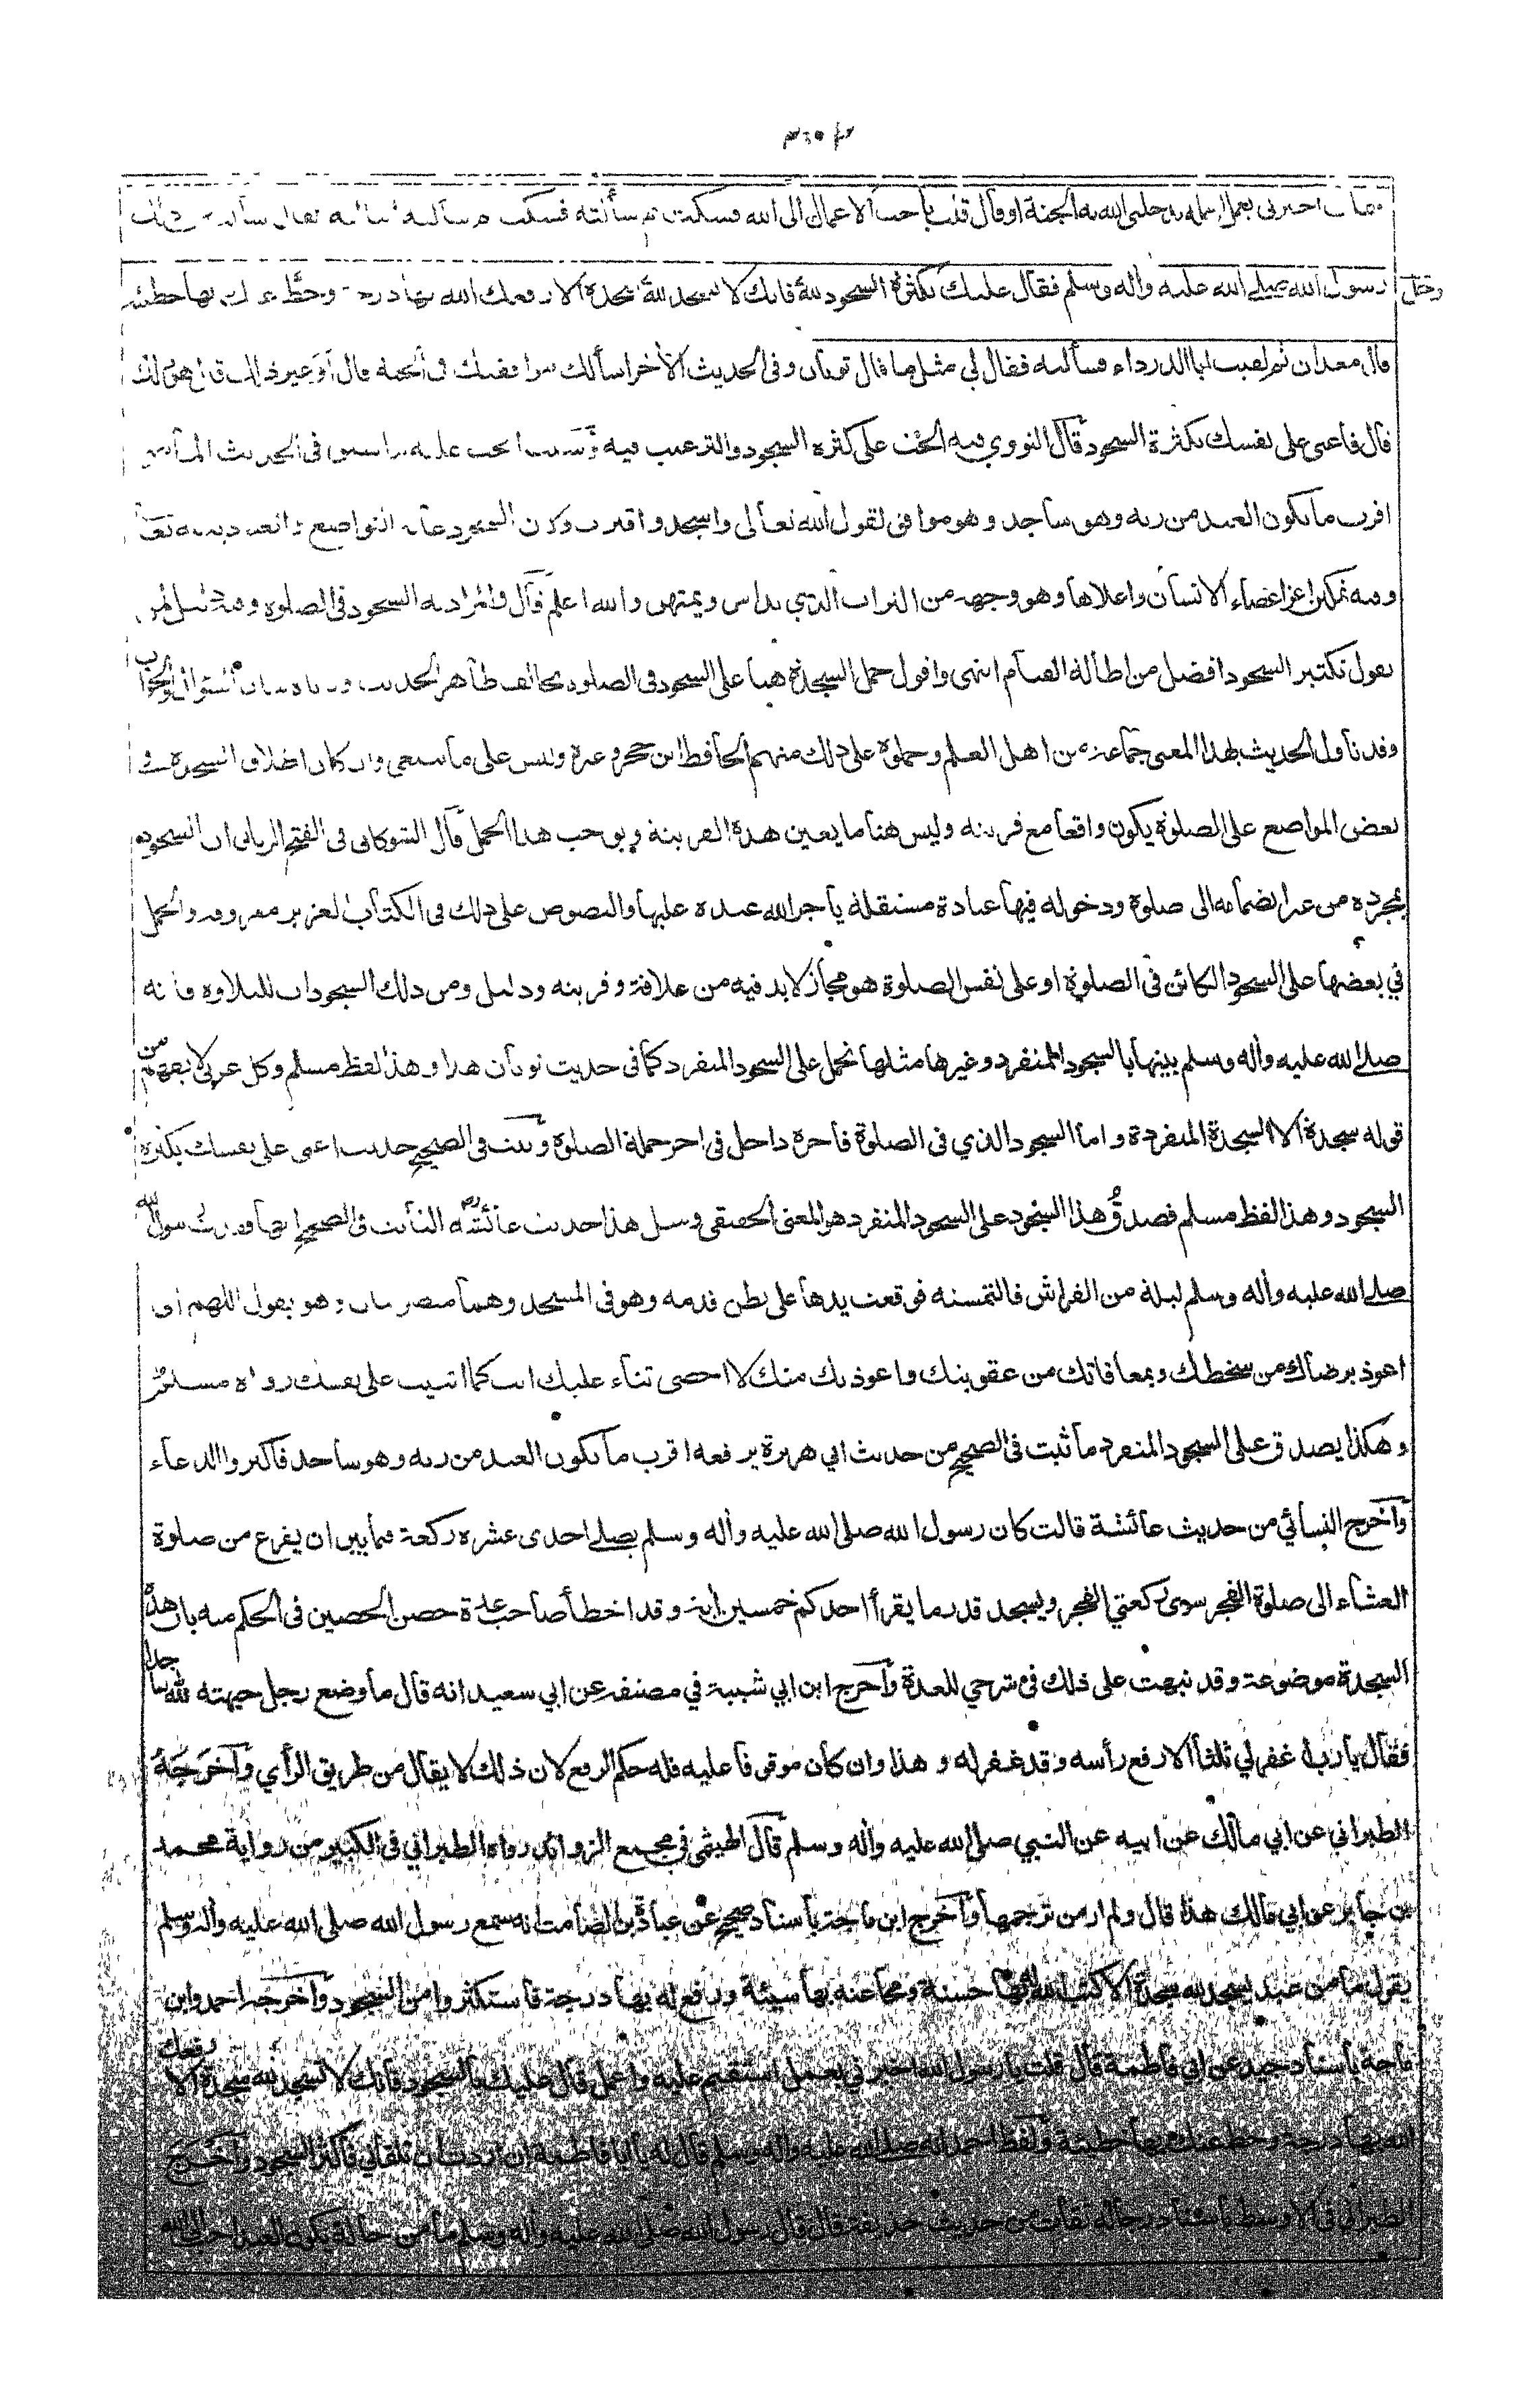 فقلت اخبرني بعمل اعمله يدخلني الله به الجنة او قال قلت بأحب الاعمال الى الله فسكت ثم سألته فسكت ثم سألته الثالثة فقال سألت عن ذلك
رسول الله صلى الله عليه وأله وسلم فقال عليك بكثرة السجود لله فانك لا تسجد لله سجدة الا رفعك الله بها درجة وحط عنك بها خطيئة
قال معدان ثم لقيت ابا الدرداء فسألته فقال لي مثل ما قال ثوبان وفي الحديث الأخر اسألك مرافقتك في الجنة قال أو غير ذلك قال هو ذلك
قال فاعني على نفسك بكثرة السجود قال النووي فيه الحث على كثرة السجود والترغيب فيه في الحديث الماضي
اقرب ما يكون العبد من ربه وهو ساجد وهو موافق لقول الله تعالى واسجد واقترب ولان السجود غاية التواضع والعبودية لله تعالى
وفيه تمكين اعز اعضاء الانسان واعلاها وهو وجهه من التراب الذي يداس ويمتهن والله اعلم قال والمراد به السجود في الصلوة وفيه دليل لمن
يقول تكثير السجود افضل من اطالة القيام انتهى واقول حمل السجدة هنا على السجود في الصلوة يخالف ظاهر الحديث السؤال والجواب
وقد تأول الحديث بهذا المعنى جماعة من اهل العلم وحملوه على ذلك منهم الحافظ ابن حجر وغيره وليس على ما ينبغي وان كان اطلاق السجدة في
بعض المواضع على الصلوة يكون واقعا مع قرينة وليس هنا ما يعين هذه القرينة ويوجب هذا الحمل قال الشوكاني في الفتح الرباني ان السجود
بمجرده من غير انضمامه الى صلوة ودخوله فيها عبادة مستقلة يأجر الله عبده عليها والنصوص على ذلك في الكتاب العزيز معروفة والحمل
في بعضها على السجود الكائن في الصلوة او على نفس الصلوة هو مجاز لا بد فيه من علاقة وقرينة ودليل ومن ذلك السجودات للتلاوة فانه
صلى الله عليه وأله وسلم بينها بالسجود المنفرد وغيرها مثلها تحمل على السجود المنفرد كما في حديث ثوبان هذا وهذا لفظ مسلم وكل عربي لا يفهم من
قوله سجدة الا السجدة المنفردة واما السجود الذي في الصلوة فأجره داخل في اجر جملة الصلوة وثبت في الصحيح حديث اعني على نفسك بكثرة
السجود وهذا لفظ مسلم فصدق هذا السجود على السجود المنفرد هو المعنى الحقيقي ومثل هذا حديث عائشة الثابت في الصحيح انها فقدت رسول الله
صلى الله عليه وأله وسلم ليلة من الفراش فالتمسته فوقعت يدها على بطن قدمه وهو في المسجد وهما منصوبتان وهو يقول اللهم اني
اعوذ برضاك من سخطك وبمعافاتك من عقوبتك واعوذ بك منك لا احصي ثناء عليك انت كما اثنيت على نفسك رواه مسلم
وهكذا يصدق على السجود المنفرد ما ثبت في الصحيح من حديث ابي هريرة يرفعه اقرب ما يكون العبد من ربه وهو ساجد فأكثروا الدعاء
وأخرج النسائي من حديث عائشة قالت كان رسول الله صلى الله عليه وأله وسلم يصلي احدى عشره ركعة فيما بين ان يفرغ من صلوة
العشاء الى صلوة الفجر سوى ركعتي الفجر ويسجد قدر ما يقرأ احدكم خمسين أية وقد اخطأ صاحب عدة حصن الحصين في الحكم منه بان هذه
السجدة موضوعة وقد نبهت على ذلك في شرحي للعدة وأخرج ابن ابي شيبة في مصنفه عن ابي سعيد انه قال ما وضع رجل جبهته لله ساجدا
فقال يا رب اغفر لي ثلثا الا رفع رأسه وقد غفر له وهذا وان كان موقوفا عليه فله حكم الرفع لان ذلك لا يقال من طريق الرأي وأخرجه
الطبراني عن ابي مالك عن ابيه عن النبي صلى الله عليه وأله وسلم قال الهيثمي في مجمع الزوائد رواه الطبراني في الكبير من رواية محمد
بن جابر عن ابي مالك هذا قال ولم ار من ترجمها وأخرج ابن ماجة بأسناد صحيح عن عبادة بن الصامت انه سمع رسول الله صلى الله عليه وأله وسلم
يقول ما من عبد يسجد لله سجدة الا كتب الله له بها حسنة ومحا عنه بها سيئة ورفع له بها درجة فاستكثروا من السجود وأخرجه احمد وابن
ماجة بأسناد جيد عن ابي فاطمة قال قلت يا رسول الله اخبرني بعمل استقيم عليه واعمل قال عليك بالسجود فانك لا تسجد لله سجدة الا رفعك
الله بها درجة وحط عنك بها خطيئة ولفظ احمد انه صلى الله عليه وأله وسلم قال له يا ابا فاطمة ان اردت ان تلقاني فأكثر السجود وأخرج
الطبراني في الاوسط بأسناد رجاله ثقات من حديث حذيفة قال قال رسول الله صلى الله عليه وأله وسلم ما من حالة يكون العبد احب الى الله